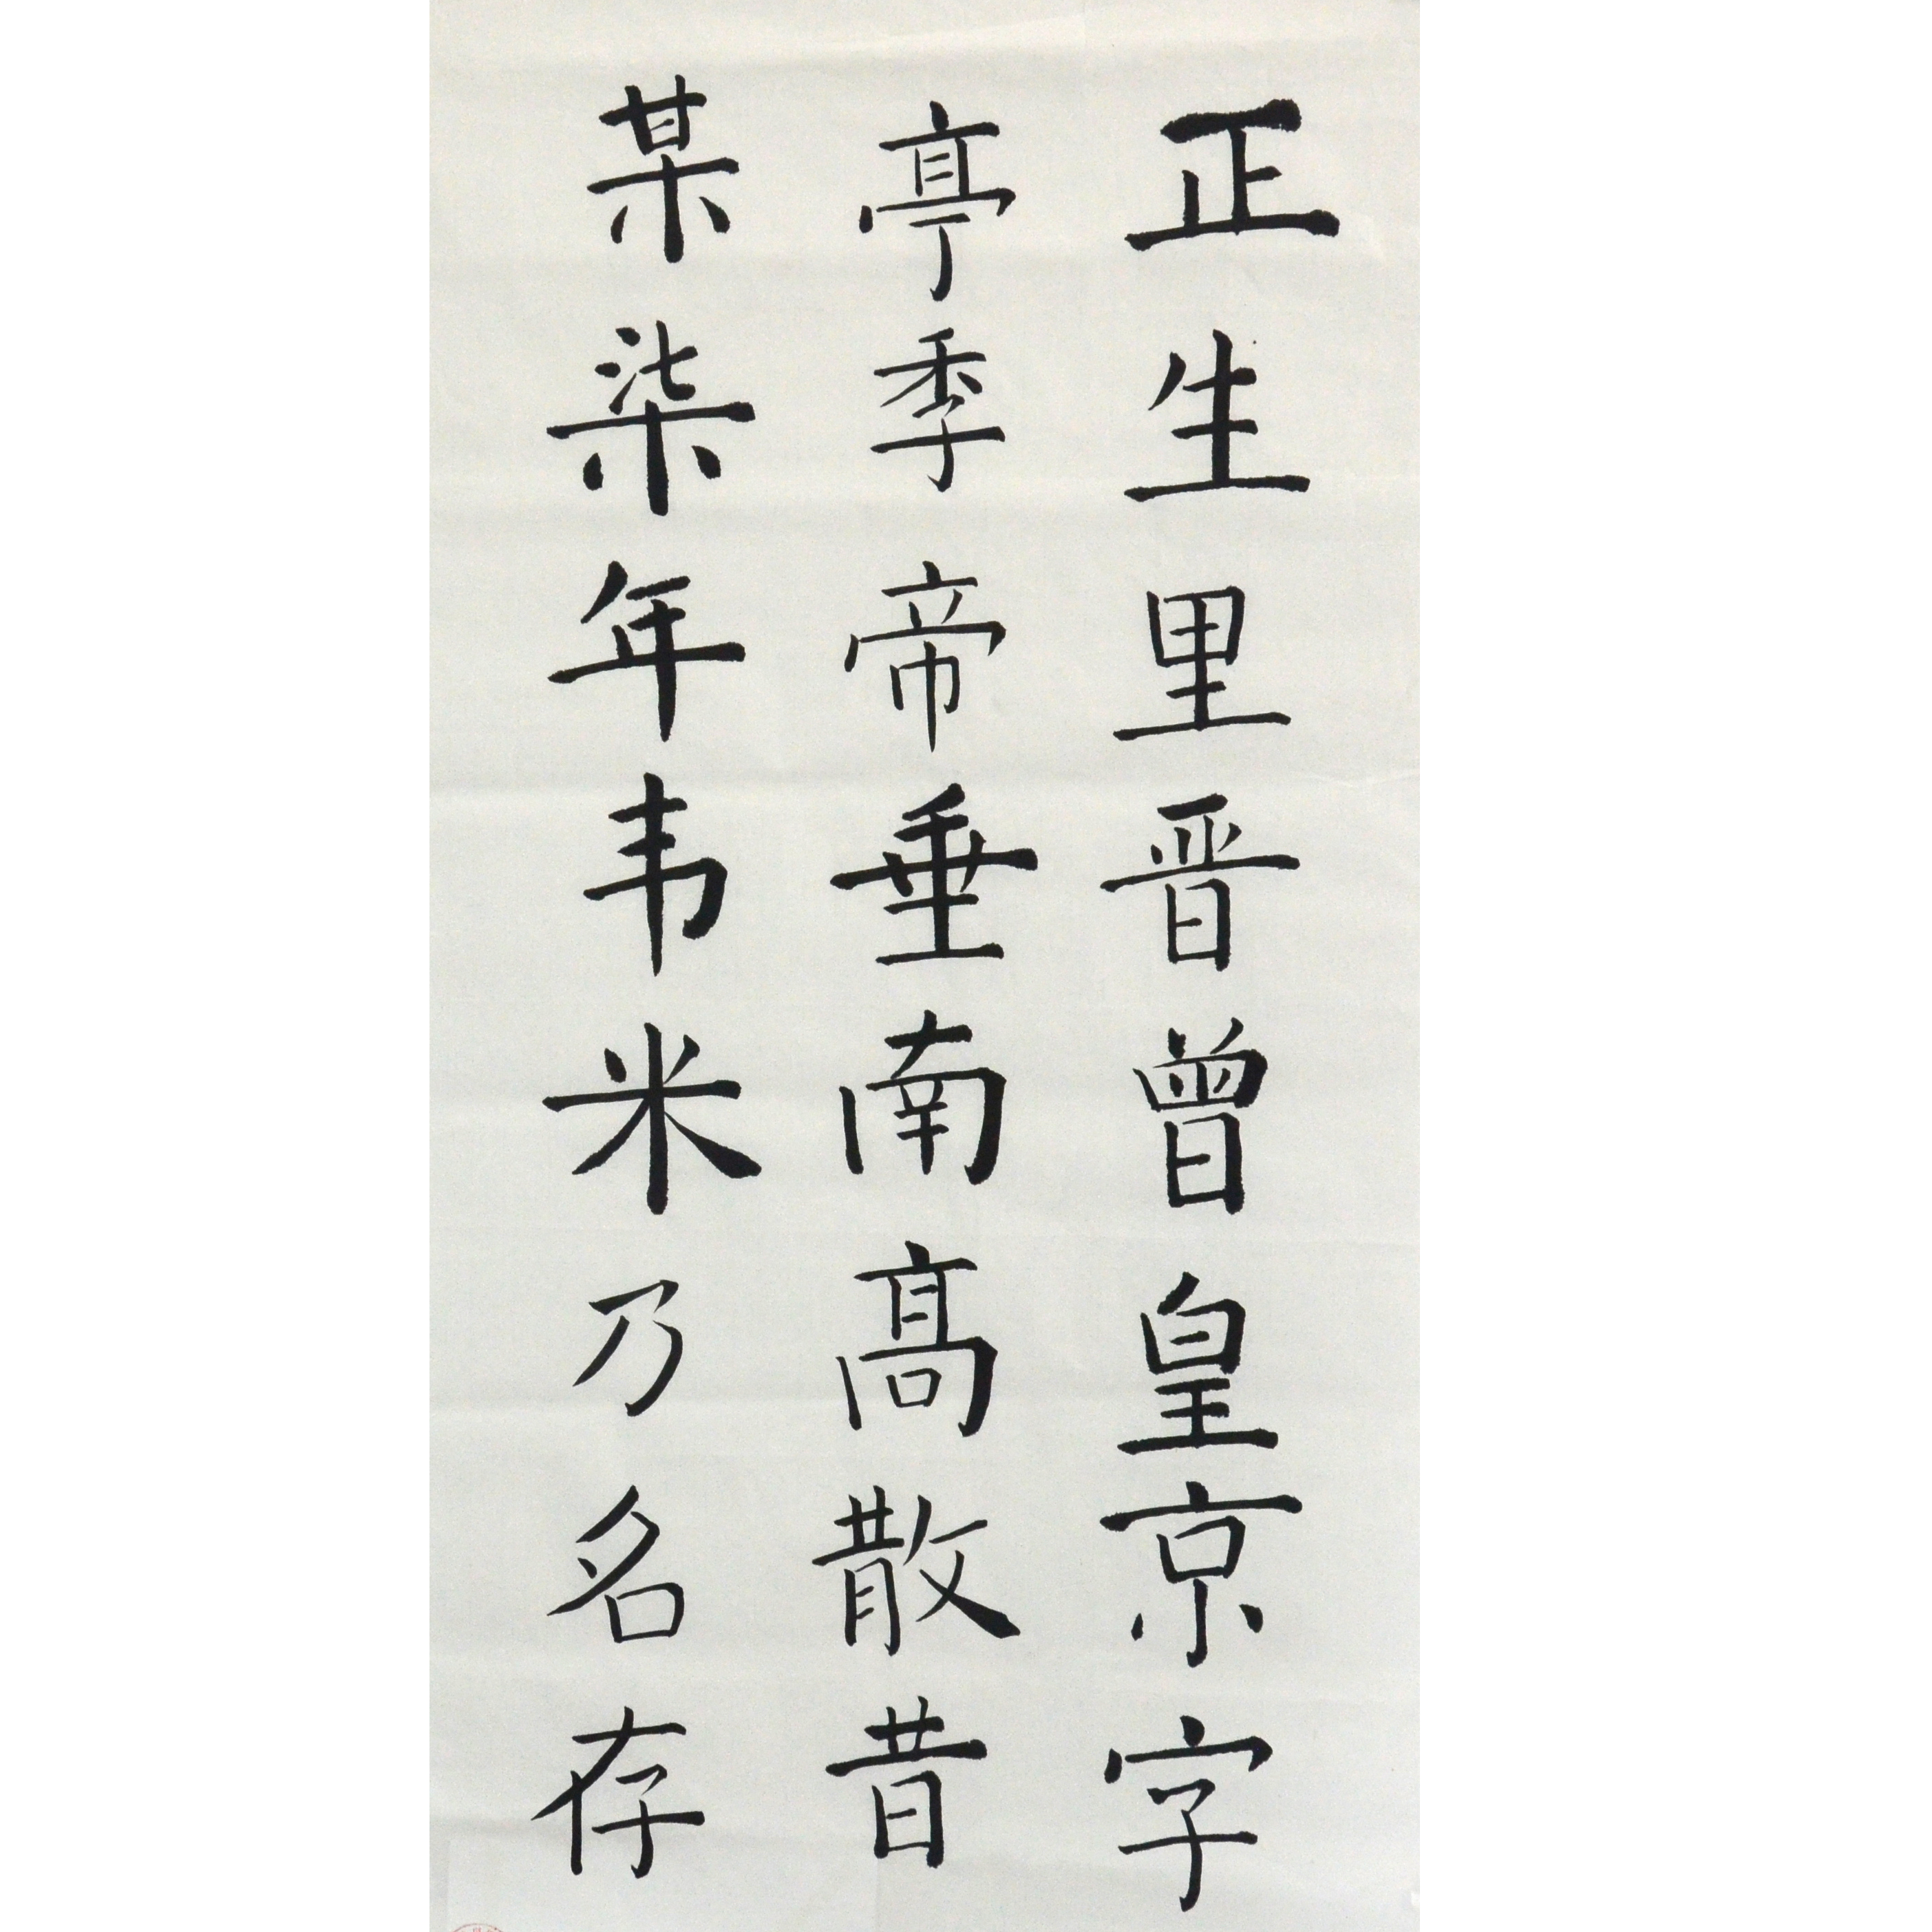 正生里晋曾皇京字
亭季帝垂南髙散昔
某柒年韦米乃名存